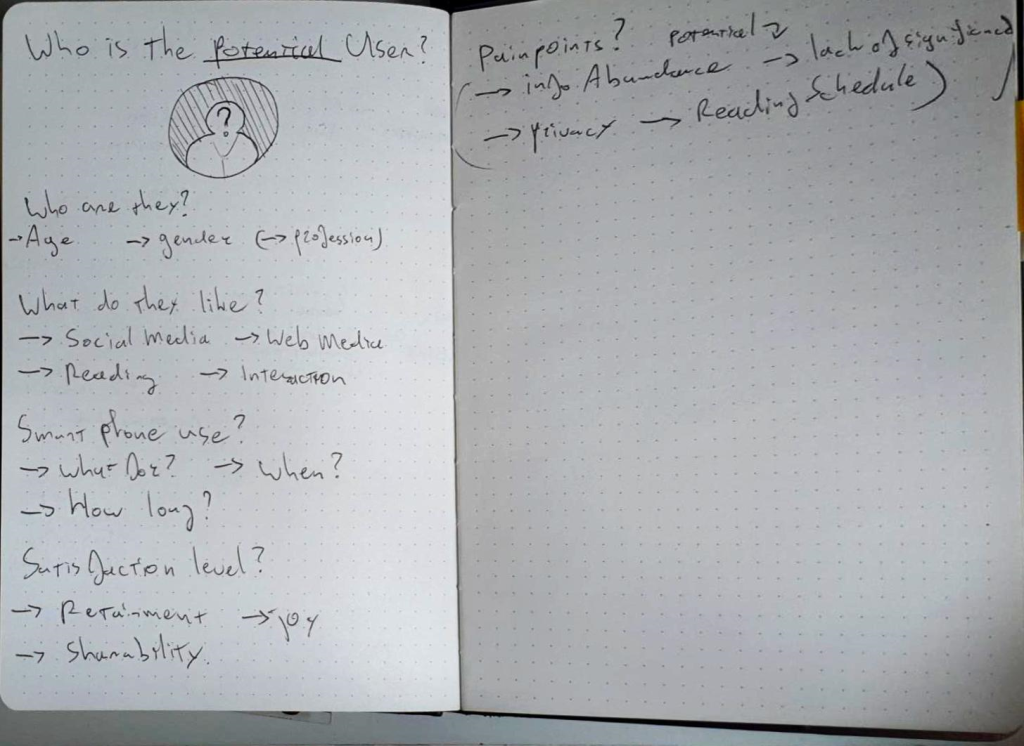 Who is the potential User?
?
Who are they?
→ Age → gender (→ profession)
What do they like?
→ Social Media → Web Media
→ Reading → Interaction
Smart phone use?
→ What For? → When?
→ How long?
Satisfaction level?
→ Retainment → joy
→ Sharability.
Painpoints? potential
(→ info Abundance → lack of
→ privacy → Reading Schedule)